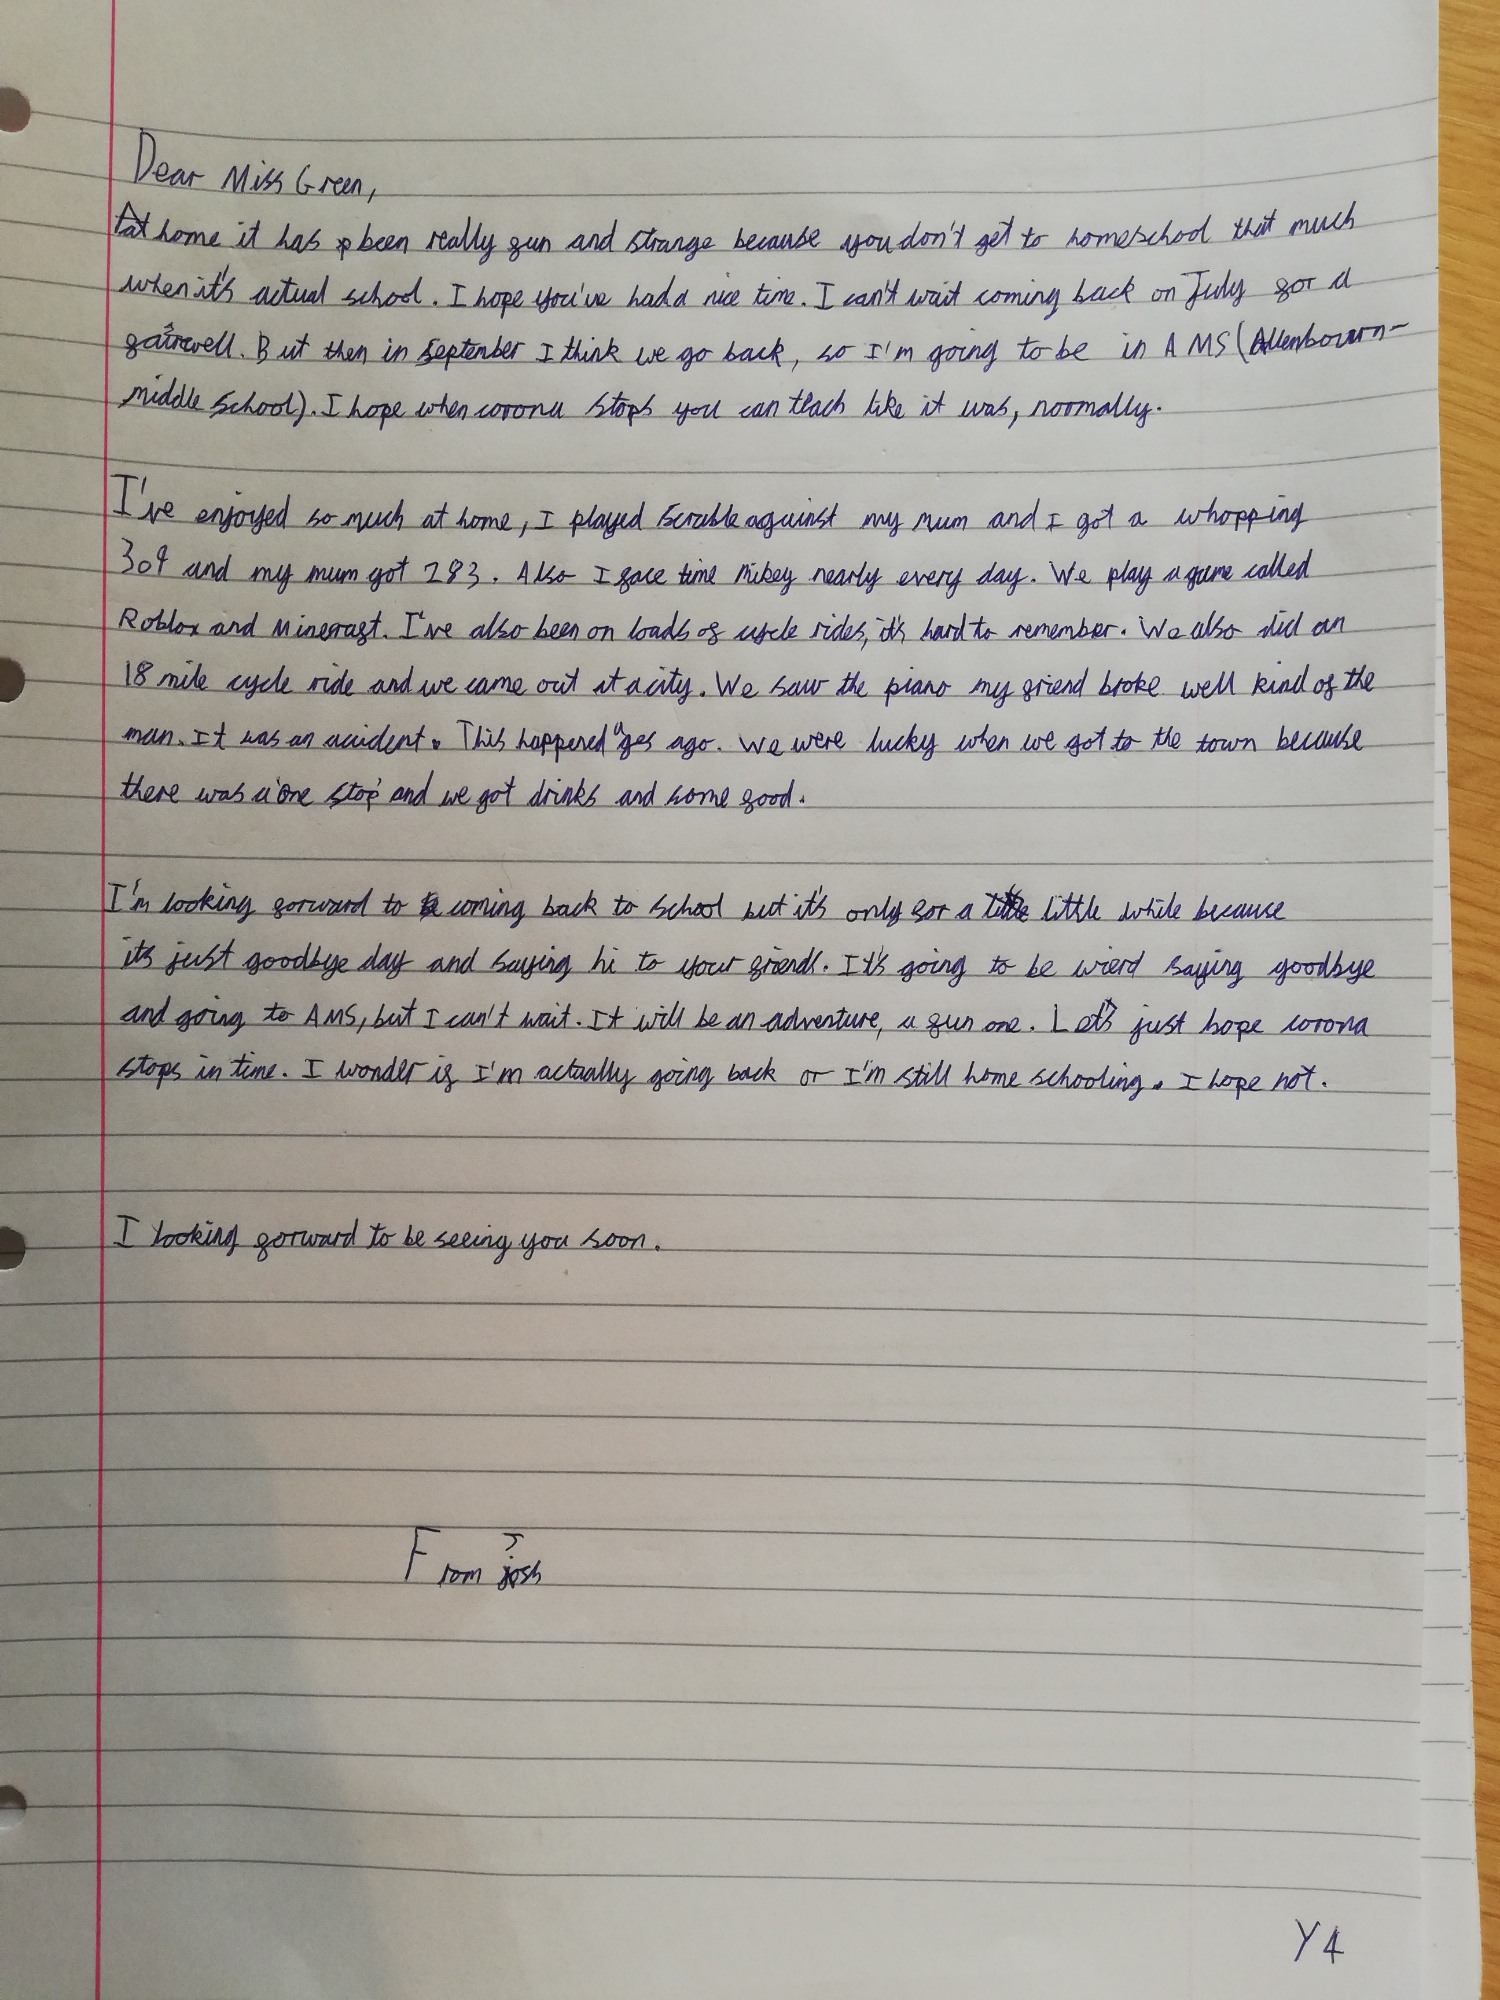 Dear Miss Green,
At home it has been really fun and strange because you don't get to homeschool that much
when it's actual school. I hope you've had a nice time. I can't wait coming back on July for a
fairwell. But then in September I think we go back, so I'm going to be in AMS (Allenbourn-
middle School). I hope when corona stops you can teach like it was, normally.
I've enjoyed so much at home, I played Scrabble against my mum and I got a whopping
309 and my mum got 283. Also I face time Mikey nearly every day. We play a game called
Roblox and Minecraft. I've also been on loads of cycle rides, it's hard to remember. We also did an
18 mile cycle ride and we came out at a city. We saw the piano my friend broke well kind of the
man. It was an accident. This happened ages ago. We were lucky when we got to the town because
there was a 'one stop' and we got drinks and some food.
I'm looking forward to coming back to school but it's only for a little while because
it's just goodbye day and saying hi to your friends. It's going to be wierd saying goodbye
and going to AMS, but I can't wait. It will be an adventure, a fun one. Let's just hope corona
stops in time. I wonder if I'm actually going back or I'm still home schooling. I hope not.
I looking forward to be seeing you soon.
From Josh
Y4